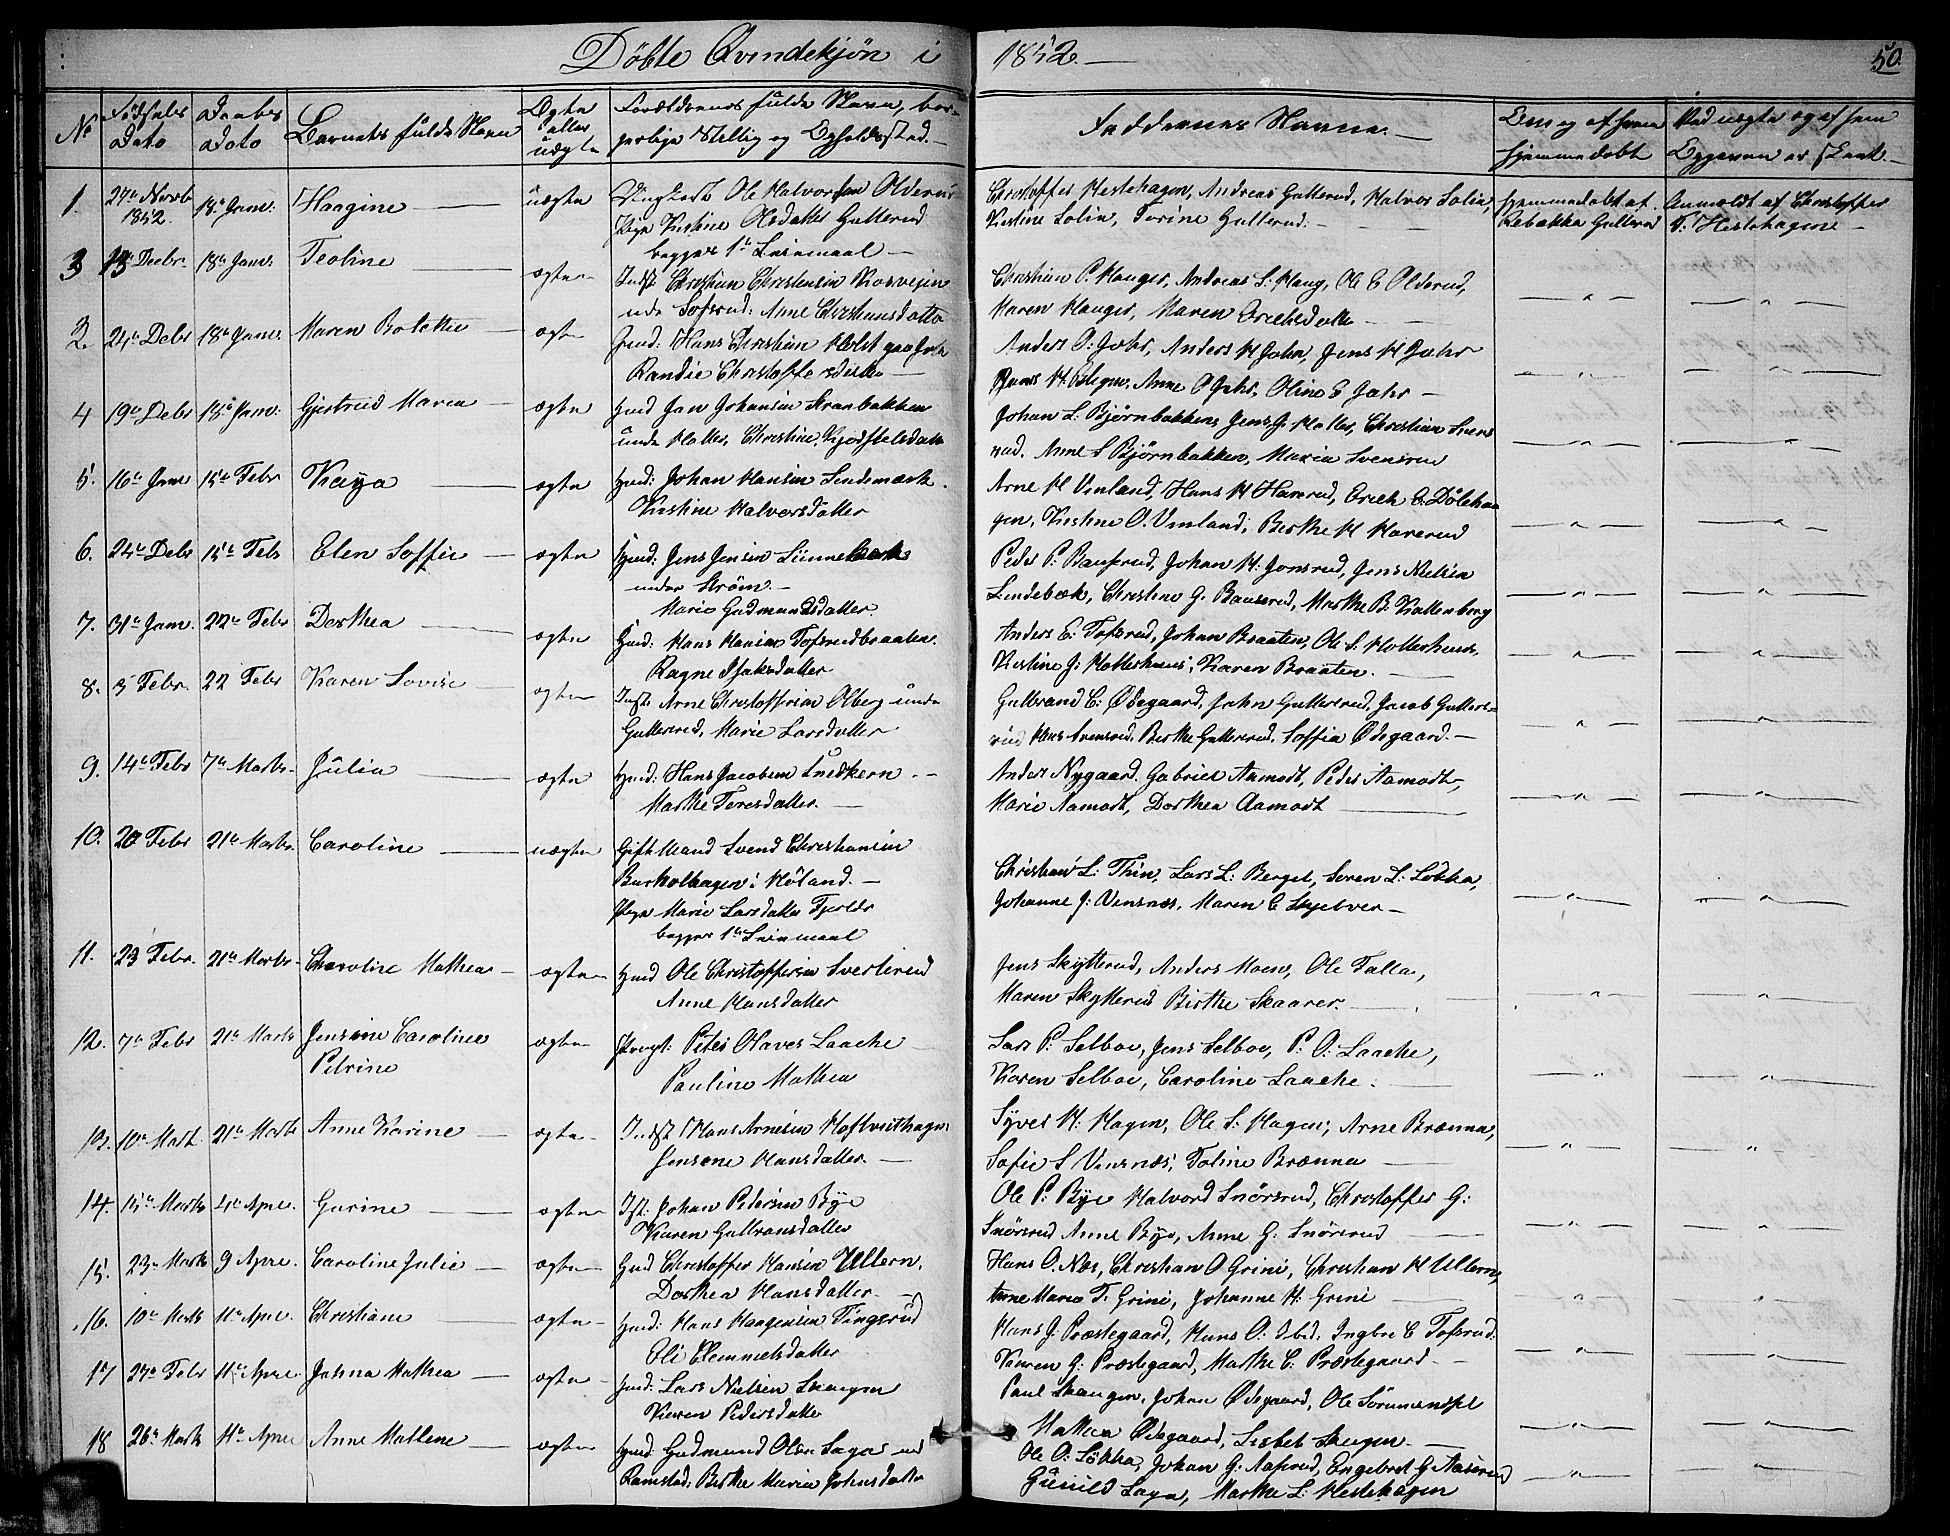 Døbte Qvindekjøn i 1852.
50.
No
Fødsels Dato
Daabes Dato
Barnets fulde Navn
Ægte eller uægte
Forældrenes fulde Navn, borgerlige Stilling og Opholdssted.
Faddernes Navne.
Om og af hvem hjemmedøbt
1. 27de Novb 1852. 18de Janr. Haagine uægte
Ungkarl Ole Halvorsen Olderud
Pige Kirstine Olsdatter Gullerud
begges 1ste Leiermaal
Christoffer Hestehagen, Andreas Gullerud, Halvor Lolia,
Kirstine Lolia, Torine Gullerud.
Hjemmedøbt af Rebækka Gullerud
Anmeldt af Christoffer T. Hestehagen
3 13 Decbr. 18de Janr. Teoline ægte
Inds: Christian Christensen
Anne Christiansdatter
Christian P. Hauger, Andreas L. Haug, Ole E Olderud,
Maren Hauger, Maren Erichsdatter
2. 24de Debr 18de Janr. Maren Bolette ægte
Hmd: Hans Christian Holst
Randie Christoffersdatter
Anders O: Jahr, Anders H Jahr, Jens H Jahr
Anne O Jahr, Oline E Jahr
4 19de Debr 18de Janr. Gjertrud Maria ægte
Hmd Jan Johansen Kranbakken
under Holter, Christine Kjødstelsdatter
Johan L. Bjørnbakken, Jens J. Holter, Christian Svens
rud, Anne S Bjørnbakken, Maria Svensrud
5. 16de Janr 15de Febr Kaya ægte
Hmd: Johan Hansen Lindemark
Kirstine Halvorsdatter
Arne H Vinland, Hans H Harerud, Erich E. Døleha
gen, Kirstine O. Vinland, Berthe H Harerud
6. 24de Debr 15de Feb Elen Soffie ægte
Hmd: Jens Jensen
under Strøm.
Marie Gudmundsdatter.
Peder P. Bauserud, Johan H. Jonsrud, Jens Nielsen
Lindebæk, Christine G. Bauserud, Marthe B. Kallenberg
7. 31te Janr. 22de Febr Dorthea ægte
Hmd: Hans Hansen Tofsrudbraaten.
Ragne Isaksdatter
Anders E: Tofsrud, Johan Braaten, Ole S. Holterhuus,
Kirstine J. Holterhuus, Karen Braaten.
8. 3 Febr. 22 Febr Karen Lovise ægte
Inds: Arne Christoffersen Olberg under
Gullerud, Marie Larsdatter
Gulbrand C: Ødegaard, John Gullerud, Jacob Gulle-
rud Hans Svensrud, Berthe Gullerud, Soffia Ødegaard.
9. 14de Febr 7de Marts Julia ægte
Hmd: Hans Jacobsen Snedkern
Marthe Toresdatter.
Anders Nygaard, Gabriel Aamodt, Peder Aamodt,
Marie Aamodt, Dorthea Aamodt
10. 20 Febr 21de Marts. Caroline uægte
Gift Mand Svend Christiansen
Burholhagen i Høland.
Pige Marie Larsdatter Fjeld
begges 1ste Leiermaal
Christian L: Thin, Lars L: Berget, Soren L: Løkka,
Johanne J: Vensnæs, Maren C Skjelver
11. 23 Febr. 21de Marts Charoline Mathea ægte
Hmd Ole Christoffersen Sverterud
Anne Hansdatter
Jens Skytterud, Anders Moen, Ole Falla,
Maren Skytterud Birthe Skaarer.
12. 7de Febr 21de Marts Jensine Caroline Petrine ægte
Peter Olaves Laache
Pauline Mathea
Lars P. Selboe, Jens Selboe, P. O. Laache,
Karen Selboe, Caroline Laache.
13. 10de Mart. 21de Marts Anne Karine ægte
Indst Hans Arnesen Hoftvethagen
Jensine Hansdatter.
Syver H. Hagen, Ole S. Hagen, Arne Brænna,
Sofie S Vensnæs, Toline Brænna
14. 15de Marts 4de April. Gurine ægte
Ist: Johan Pedersen Bye
Karen Gulbransdatter
Ole P. Bye Halvord Snørsrud, Christoffer G:
Snørsrud Anne Bye, Anne G. Snørsrud
15. 23de Marts 9 April. Caroline Julie ægte
Hmd Christoffer Hansen Ullern,
Dorthea Hansdatter
Hans O. Næs, Christian O Grini, Christian H Ullern,
Anne Marie T. Grini, Johanne H. Grini
16. 10de Marts 11te April. Christiane ægte
Hmd: Hans Haagensen Tingsrud
Oli Clemmetsdatter
Hans J. Præstegaard, Hans O. Ibid. Ingbor C Tofsrud.
Karen G: Præstegaard, Marthe C: Præstegaard
17 27de Febr 11te April Johna Mathea ægte
Hmd: Lars Nielsen Skaugen
Karen Pedersdatter
Paul Skaugen, Johan Ødegaard, Ole
Mathea Ødegaard, Lisbet Skaugen.
18 26de Marts 11te April Anne Mallene ægte
Hmd: Gudmund Olsen Saga ved
Ramstad. Berthe Maria Johnsdatter
Ole O. Løkka, Johan G. Aaserud, Engebret G. Aaserud
Gunild Saga, Marthe L. Hestehagen